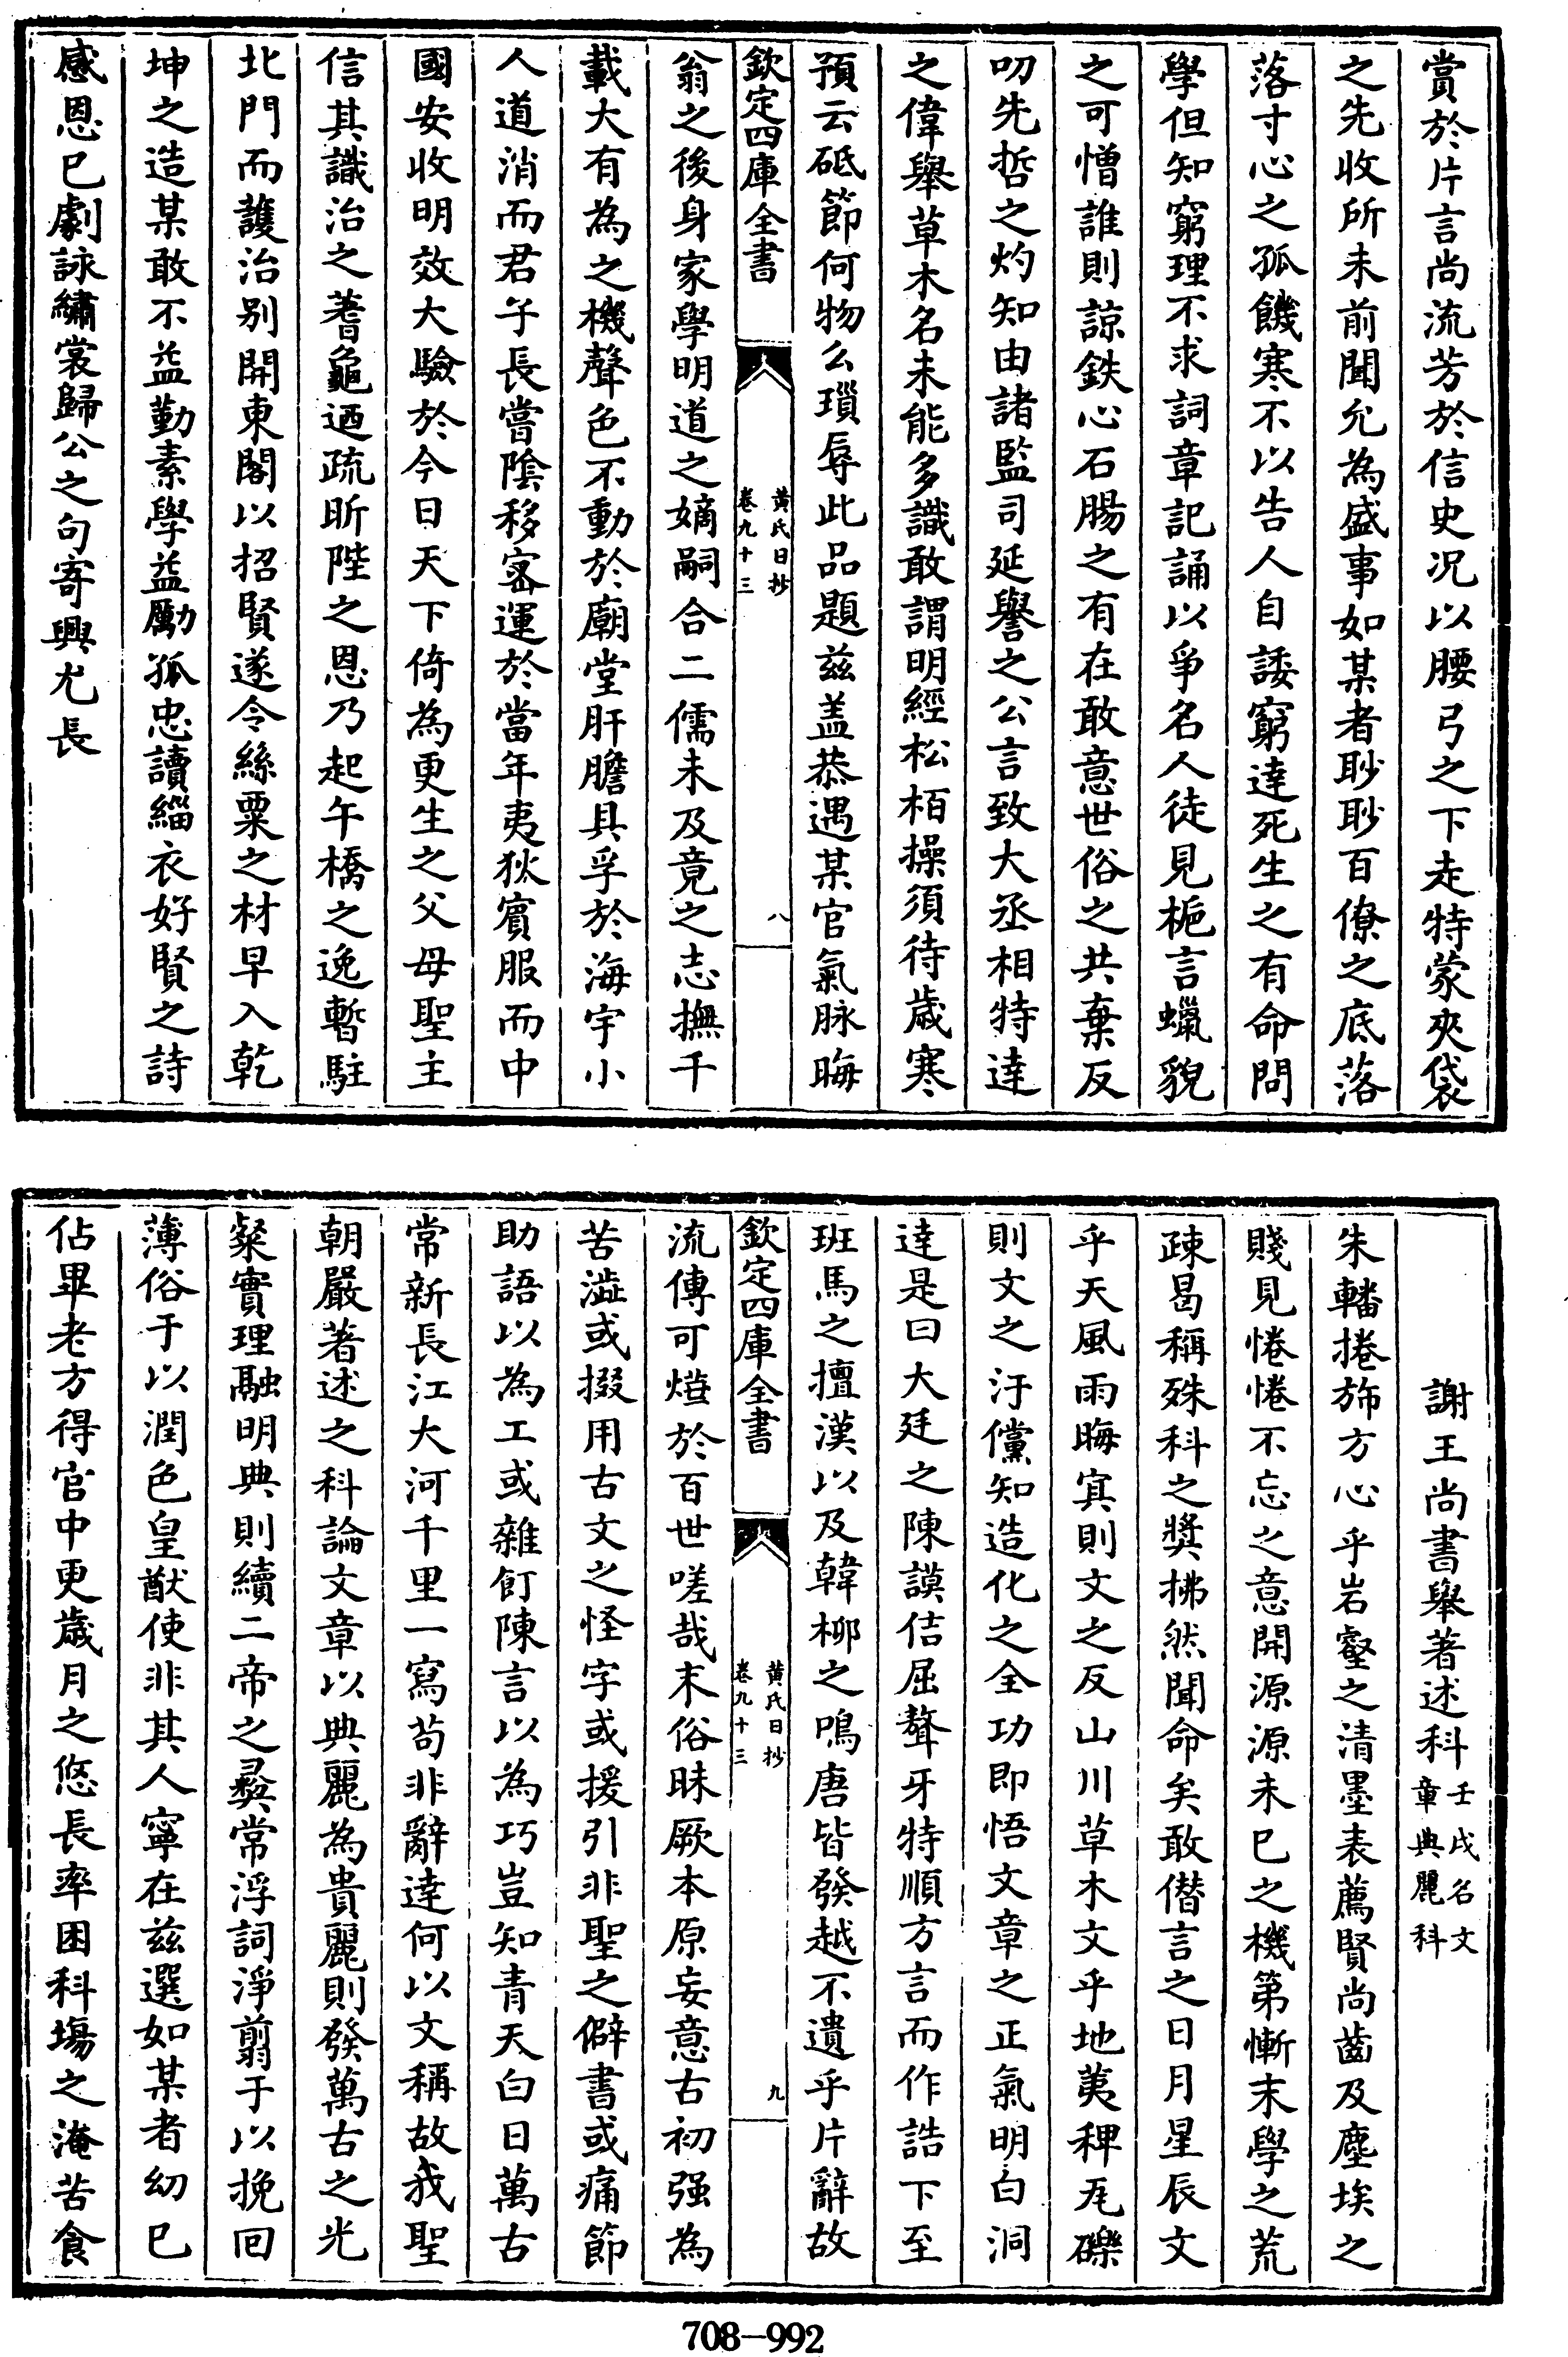 賞於片言尚流芳於信史况以腰弓之下走特蒙夾袋
之先收所未前聞允為盛事如某者眇眇百僚之底落
落寸心之孤饑寒不以告人自諉窮達死生之有命問
學但知窮理不求詞章記誦以爭名人徒見梔言蠟貌
之可憎誰則諒鉄心石腸之有在敢意世俗之共棄反
叨先哲之灼知由諸監司延譽之公言致大丞相特達
之偉舉草木名未能多識敢謂明經松栢操須待歲寒
預云砥節何物么瑣辱此品題兹盖恭遇某官氣脉晦
欽定四庫全書
黄氏日抄
卷九十三
八
翁之後身家學明道之嫡嗣合二儒未及竟之志撫千
載大有為之機聲色不動於廟堂肝膽具孚於海宇小
人道消而君子長嘗陰移宻運於當年夷狄賓服而中
國安收明效大驗於今日天下倚為更生之父母聖主
信其識治之蓍龜迺疏昕陛之恩乃起午橋之逸暫駐
北門而護治别開東閣以招賢遂令絲粟之材早入乾
坤之造某敢不益勤素學益勵孤忠讀緇衣好賢之詩
感恩已劇詠繡裳歸公之句寄興尤長
謝王尚書舉著述科壬戌名文
章典麗科
朱轓捲斾方心乎岩壑之清墨表薦賢尚齒及塵埃之
賤見惓惓不忘之意開源源未已之機第慚末學之荒
疎曷稱殊科之奬拂然聞命矣敢僭言之日月星辰文
乎天風雨晦冥則文之反山川草木文乎地荑稗瓦礫
則文之汙儻知造化之全功即悟文章之正氣明白洞
達是曰大廷之陳謨佶屈聱牙特順方言而作誥下至
班馬之擅漢以及韓柳之鳴唐皆發越不遺乎片辭故
欽定四庫全書
黄氏日抄
卷九十三
九
流傳可燈於百世嗟哉末俗昧厥本原妄意古初强為
苦澁或掇用古文之怪字或援引非聖之僻書或痛節
助語以為工或雜飣陳言以為巧豈知青天白日萬古
常新長江大河千里一寫苟非辭達何以文稱故我聖
朝嚴著述之科論文章以典麗為貴麗則發萬古之光
粲實理融明典則續二帝之彞常浮詞淨翦于以挽回
薄俗于以潤色皇猷使非其人寧在兹選如某者幼已
佔畢老方得官中更歲月之悠長率困科塲之淹苦食
708-992